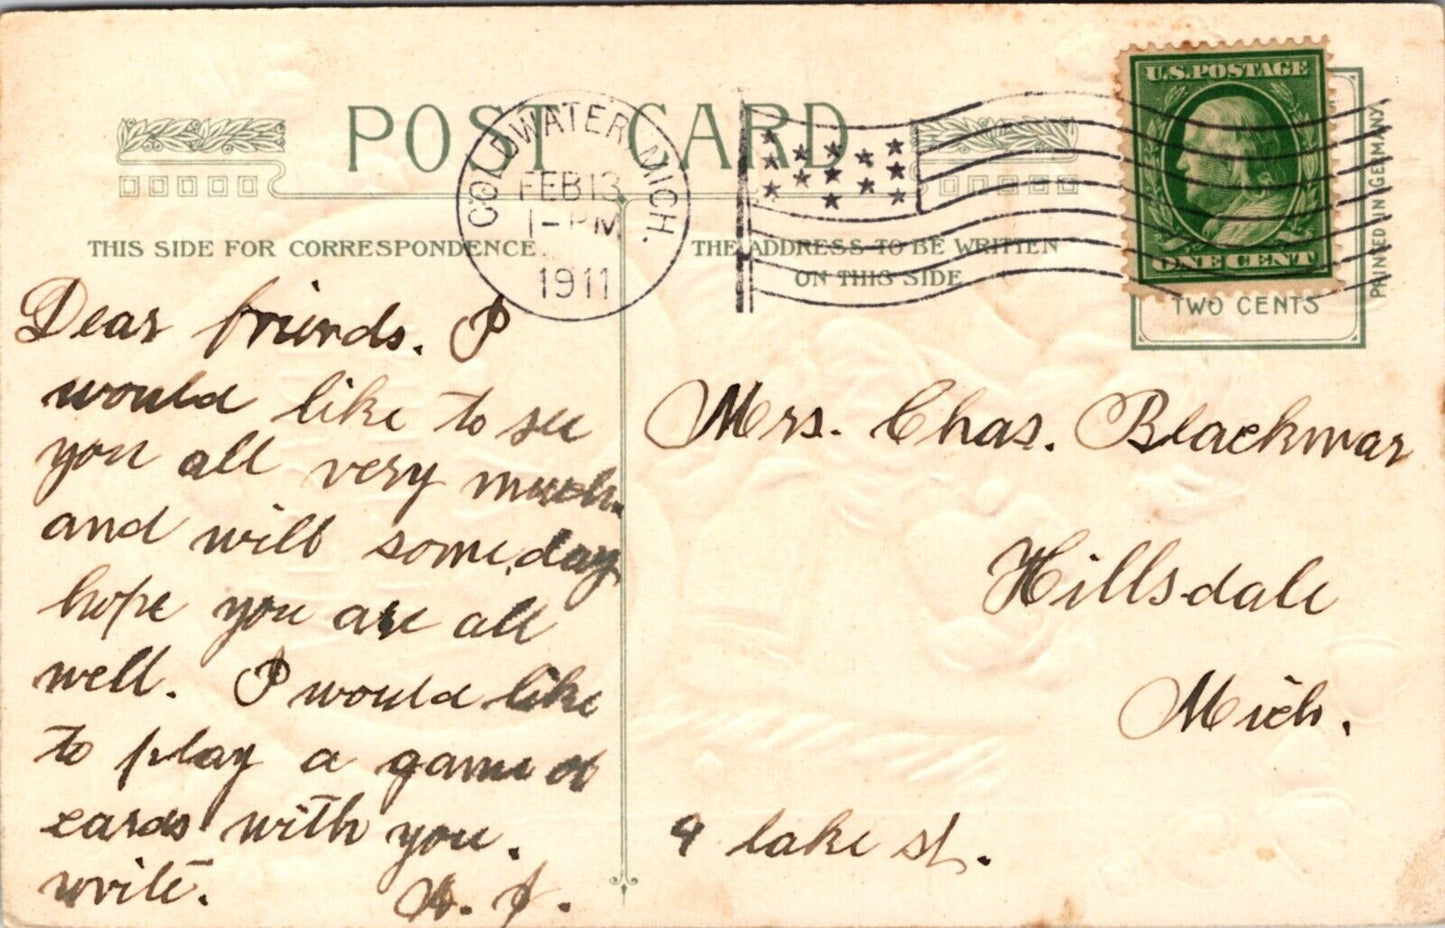 POST CARD
COLDWATER, MICH.
FEB 13
1-PM
1911
U.S. POSTAGE
ONE CENT
TWO CENTS
PRINTED IN GERMANY
THIS SIDE FOR CORRESPONDENCE.
THE ADDRESS TO BE WRITTEN
ON THIS SIDE
Dear friends. I
would like to see
you all very much
and will some day
hope you are all
well. I would like
to play a game of
cards with you.
write.
Mrs. Chas. Blackmar
Hillsdale
Mich.
9 lake st.